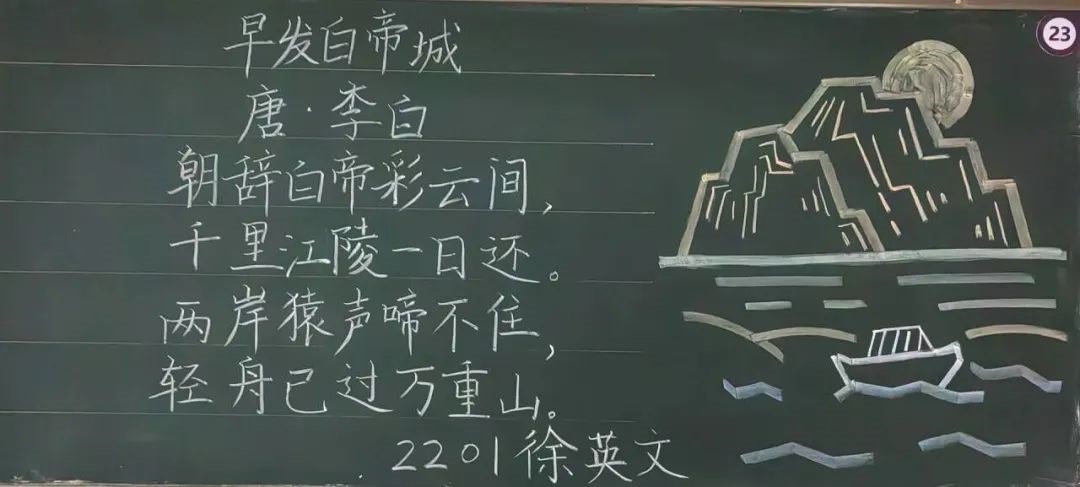 早发白帝城
唐·李白
朝辞白帝彩云间，
千里江陵一日还。
两岸猿声啼不住，
轻舟已过万重山。
2201徐英文
23